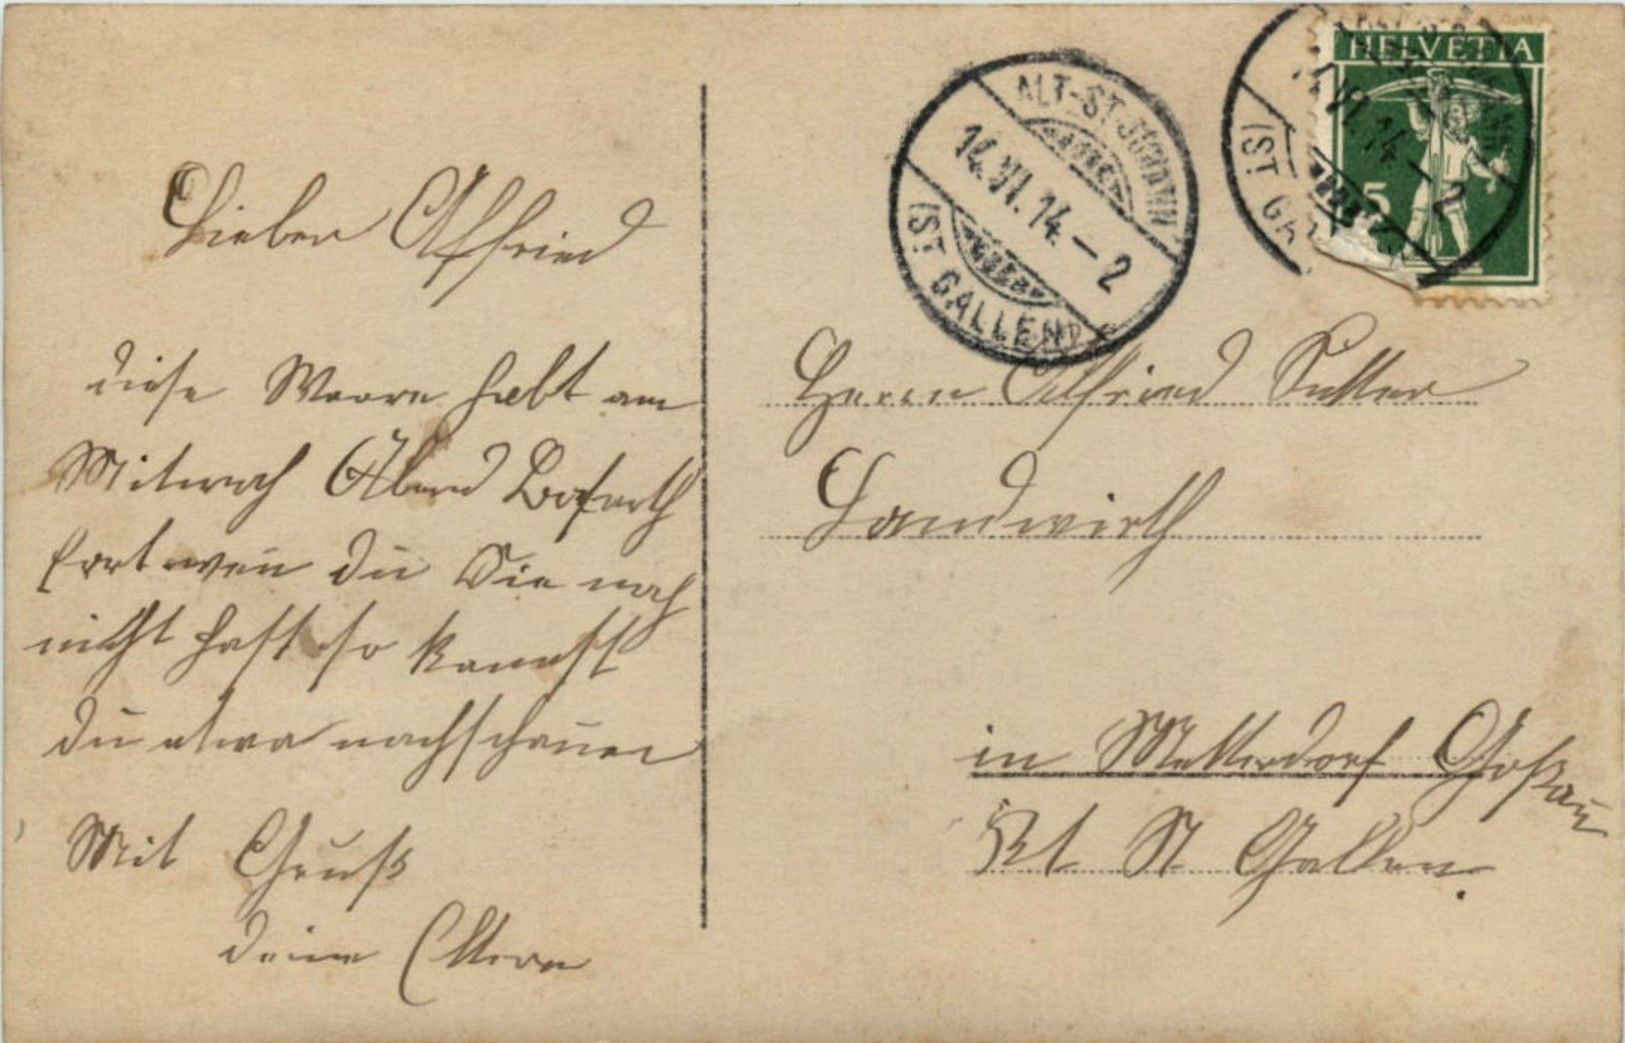 Lieber Alfried
diese Waare habt am
Mitwoch Abend
fort wen du Sie noch
nicht hast so kannst
du etwa nachschauen
Mit Gruß
deine Eltern
ALT-ST. JOHANN
14.VI.14.-2
(ST. GALLEN)
HELVETIA
5
14.-2
(ST. GA
Herrn Alfried Sutter
Landwirth
in Mettendorf Goßau
Kt St Gallen.